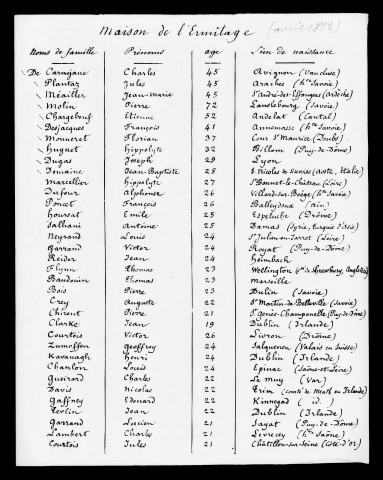 Maison de l'Ermitage (avril 1902)
Noms de famille Prénoms age Lieu de naissance
De Carmejane Charles 45 Avignon (Vaucluse)
Plantaz Jules 45 Araches (hte Savoie)
Méailler Jean-Marie 45 St André-des-Effangeas (Ardèche)
Molin Pierre 72 Lanslebourg (Savoie)
Chargebœuf Etienne 52 Andelat (Cantal)
Desjacques François 41 Annemasse (hte Savoie)
Monneret Florian 37 Cour St Maurice (Doubs)
Huguet Hippolyte 32 Billom (Puy-de-Dôme)
Dugas Joseph 29 Lyon
Domaine Jean-Baptiste 28 St Nicolas de (Aoste, Italie)
Marcellier Hippolyte 27 St Bonnet-le-Château (Loire)
Dufour Alphonse 26 Villard-sur-Boëge (hte Savoie)
Poncet François 26 Balleydoux (Ain)
houvsat Emile 25 Espeluche (Drôme)
Salhani Antoine 25 Damas (Syrie, turquie d'Asie)
Neyrand Louis 24 St Julien-en-Jarret (Loire)
Garrand Victor 24 Royat (Puy-de-Dôme)
Reider Jean 24 Heimbach
Flynn thomas 23 Wellington (Shrewsbury, Angleterre)
Baudouin thomas 23 Marseille
Bois Pierre 23 Dulin (Savoie)
Crey Auguste 22 St Martin-de-Belleville (Savoie)
Chirent Pierre 21 St Genès-Champanelle (Puy-de-Dôme)
Clarke Jean 19 Dublin (Irlande)
Courtois Victor 26 Livron (Drôme)
Zumoffen Geoffroy 24 Salquenen (Valais en Suisse)
Kavanagh henri 24 Dublin (Irlande)
Chanlon Louis 24 Epinac (Saône-et-Loire)
Gueirard Charles 22 Le Muy (Var)
Davis Nicolas 22 Trim (comté de Meath en Irlande)
Gaffney Edouard 22 Kinnegad (id.)
Tevlin Jean 22 Dublin (Irlande)
Garrand Lucien 21 Sayat (Puy-de-Dôme)
Lambert Charles 21 Livrecey (hte Saône)
Courtois Jules 21 Châtillon-sur-Seine (Côte-d'or)